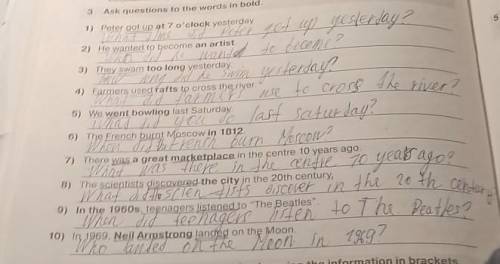 3 Ask questions to the words in bold.
1) Peter got up at 7 o'clock yesterday
What time did Peter get up yesterday?
2) He wanted to become an artist
Who did he want to become?
3) They swam too long yesterday.
How long did he swim yesterday?
4) Farmers used rafts to cross the river
What did farmers use to cross the river?
5) We went bowling last Saturday.
What did you do last saturday?
6) The French burnt Moscow in 1812.
When did French burn Moscow?
7) There was a great marketplace in the centre 10 years ago.
What was there in the centre 10 years ago?
8) The scientists discovered the city in the 20th century,
What did scientists discover in the 20th century
9) In the 1960s, teenagers listened to "The Beatles".
When did teenagers listen to The Beatles?
10) In 1969, Neil Armstrong landed on the Moon.
Who landed on the Moon in 1969?
the information in brackets